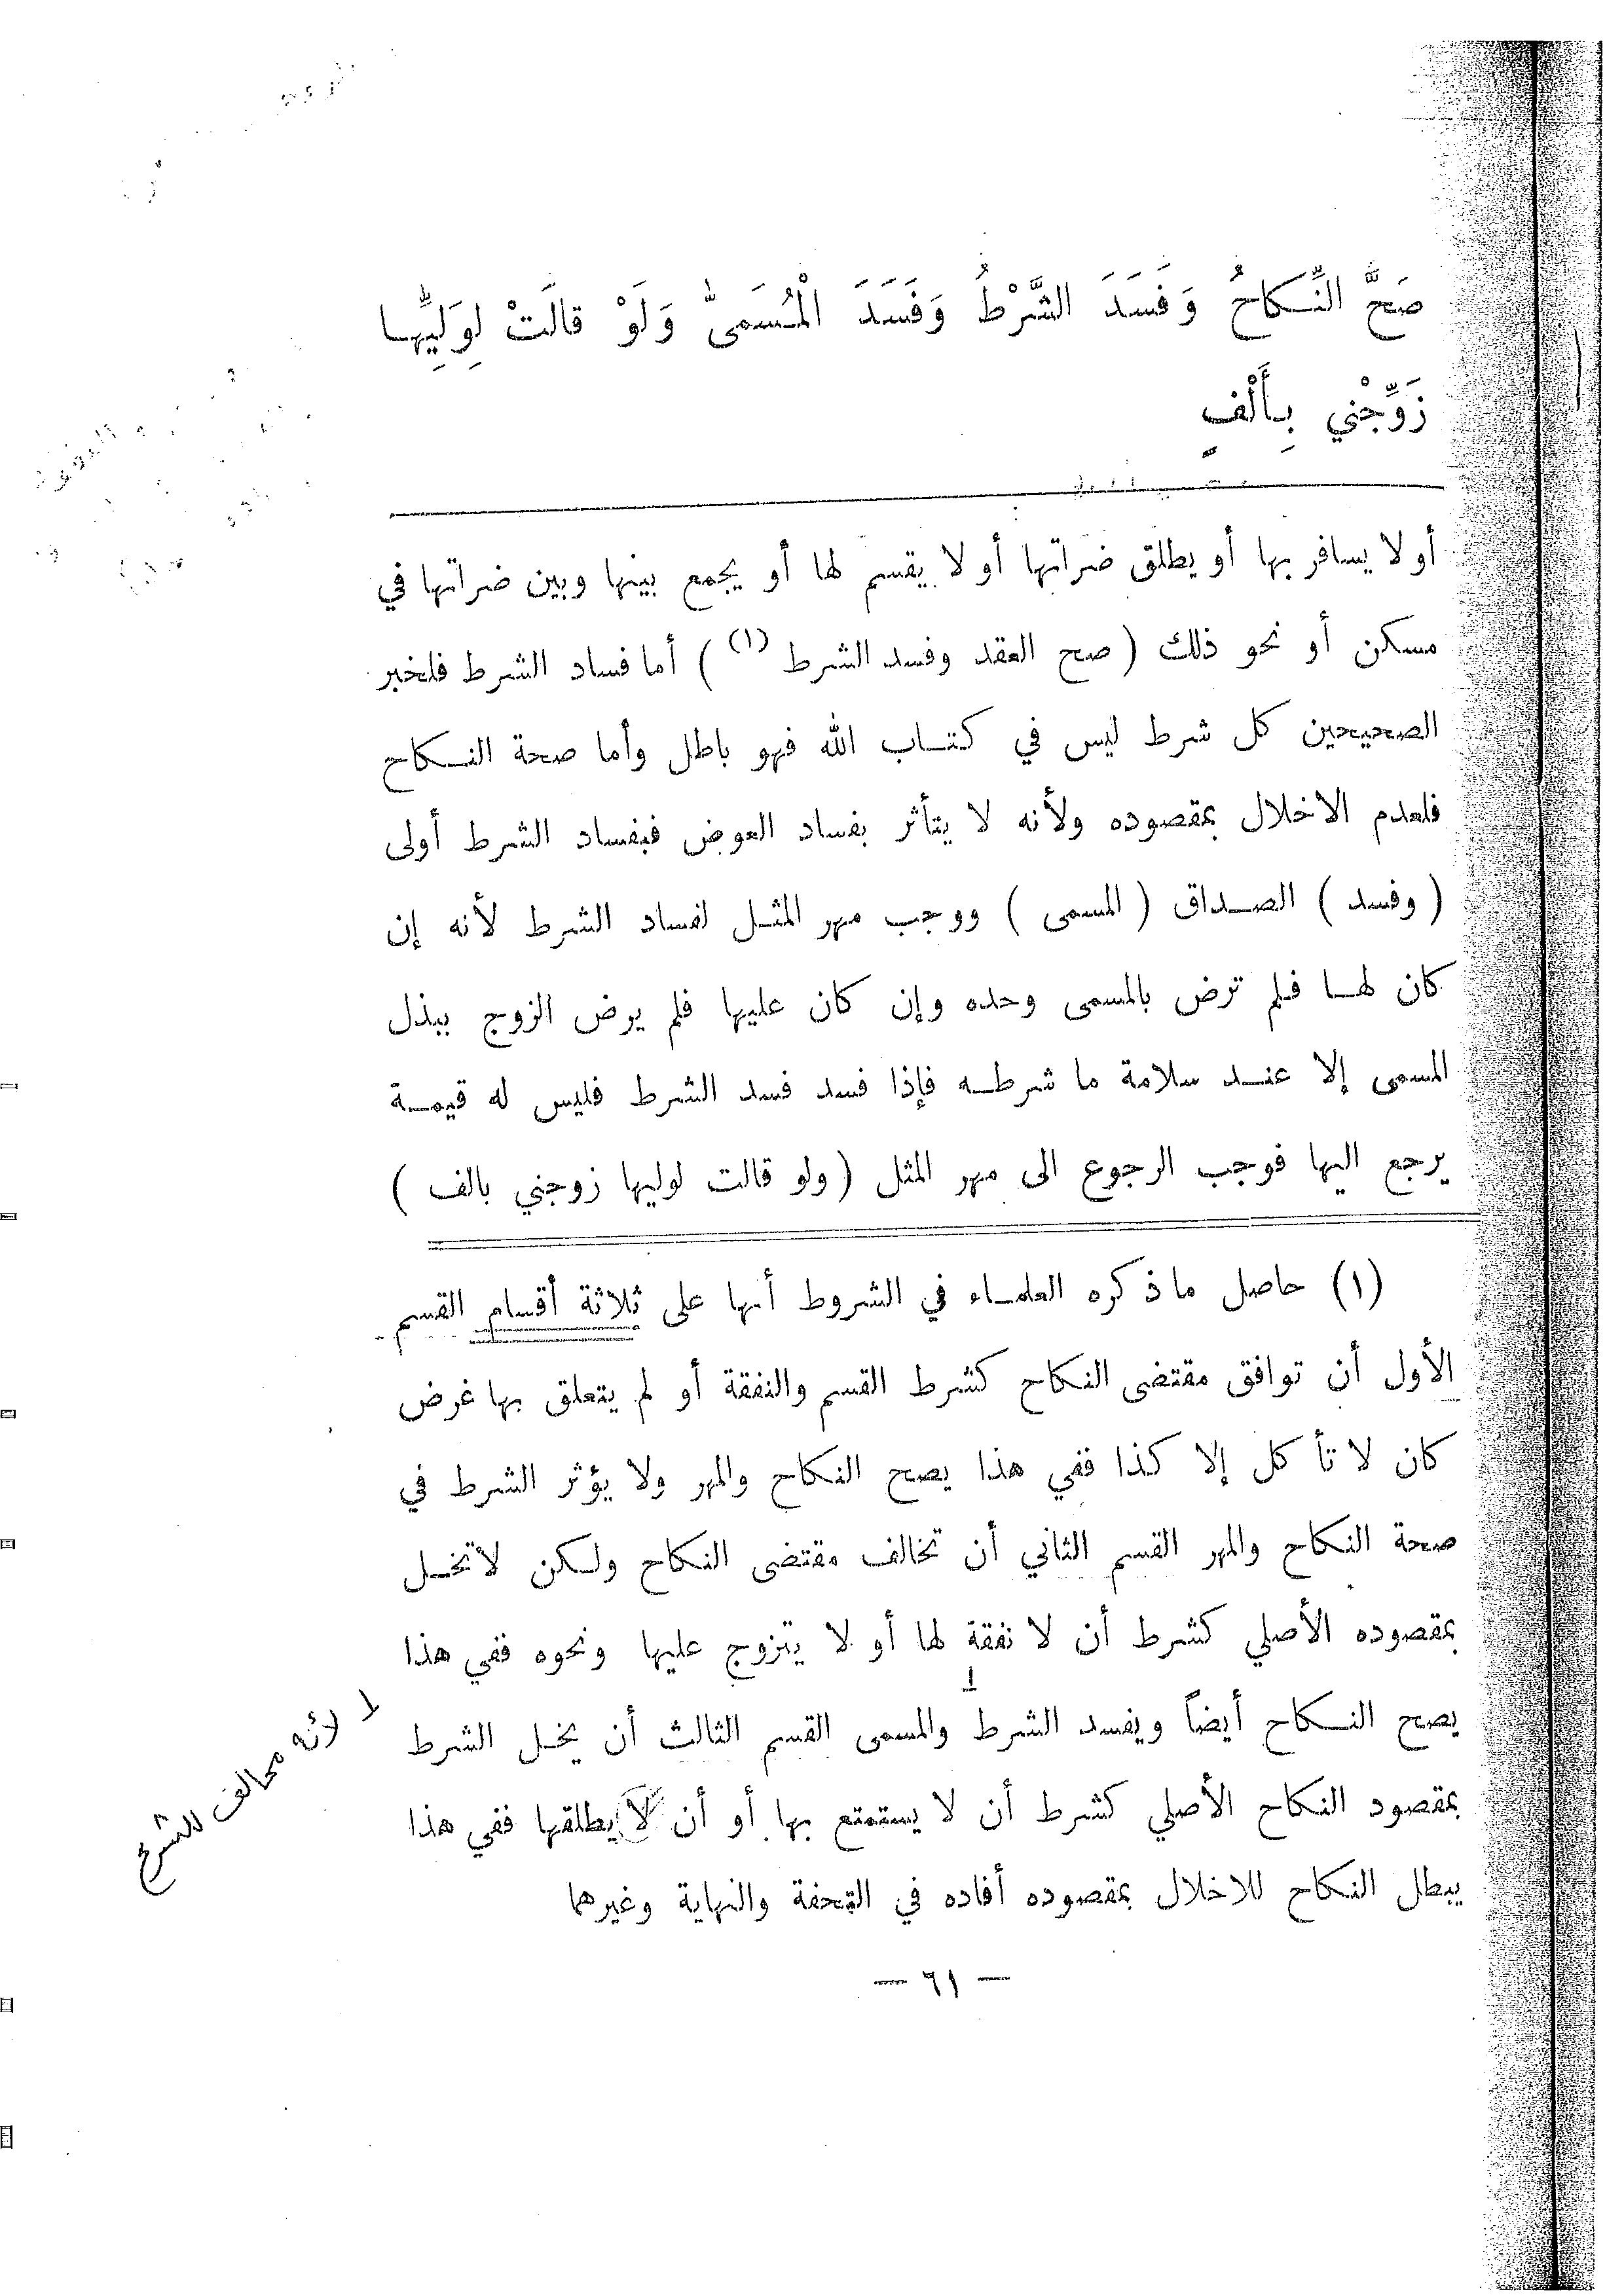 صَحَّ النِّكاحُ وَفَسَدَ الشَّرْطُ وَفَسَدَ الْمُسَمىّٰ وَلَوْ قالَتْ لِوَلِيِّها
زَوِّجْني بِأَلْفٍ
أو لا يسافر بها أو يطلق ضراتها أو لا يقسم لها أو يجمع بينها وبين ضراتها في
مسكن أو نحو ذلك ( صح العقد وفسد الشرط (١) ) أما فساد الشرط فلخبر
الصحيحين كل شرط ليس في كتاب الله فهو باطل وأما صحة النكاح
فلعدم الاخلال بمقصوده ولأنه لا يتأثر بفساد العوض فبفساد الشرط أولى
( وفسد ) الصداق ( المسمى ) ووجب مهر المثل لفساد الشرط لأنه إن
كان لها فلم ترض بالمسمى وحده وإن كان عليها فلم يرض الزوج ببذل
المسمى إلا عند سلامة ما شرطه فإذا فسد فسد الشرط فليس له قيمة
يرجع اليها فوجب الرجوع الى مهر المثل ( ولو قالت لوليها زوجني بالف )
(١) حاصل ما ذكره العلماء في الشروط أنها على ثلاثة أقسام القسم
الأول أن توافق مقتضى النكاح كشرط القسم والنفقة أو لم يتعلق بها غرض
كان لا تأكل إلا كذا ففي هذا يصح النكاح والمهر ولا يؤثر الشرط في
صحة النكاح والمهر القسم الثاني أن تخالف مقتضى النكاح ولكن لا تخل
بمقصوده الأصلي كشرط أن لا نفقة لها أو لا يتزوج عليها ونحوه ففي هذا
يصح النكاح أيضاً ويفسد الشرط والمسمى القسم الثالث أن يخل الشرط
بمقصود النكاح الأصلي كشرط أن لا يستمتع بها أو أن لا يطلقها ففي هذا
يبطل النكاح للاخلال بمقصوده أفاده في التحفة والنهاية وغيرهما
لأنه مخالف للشرع
— ٦١ —